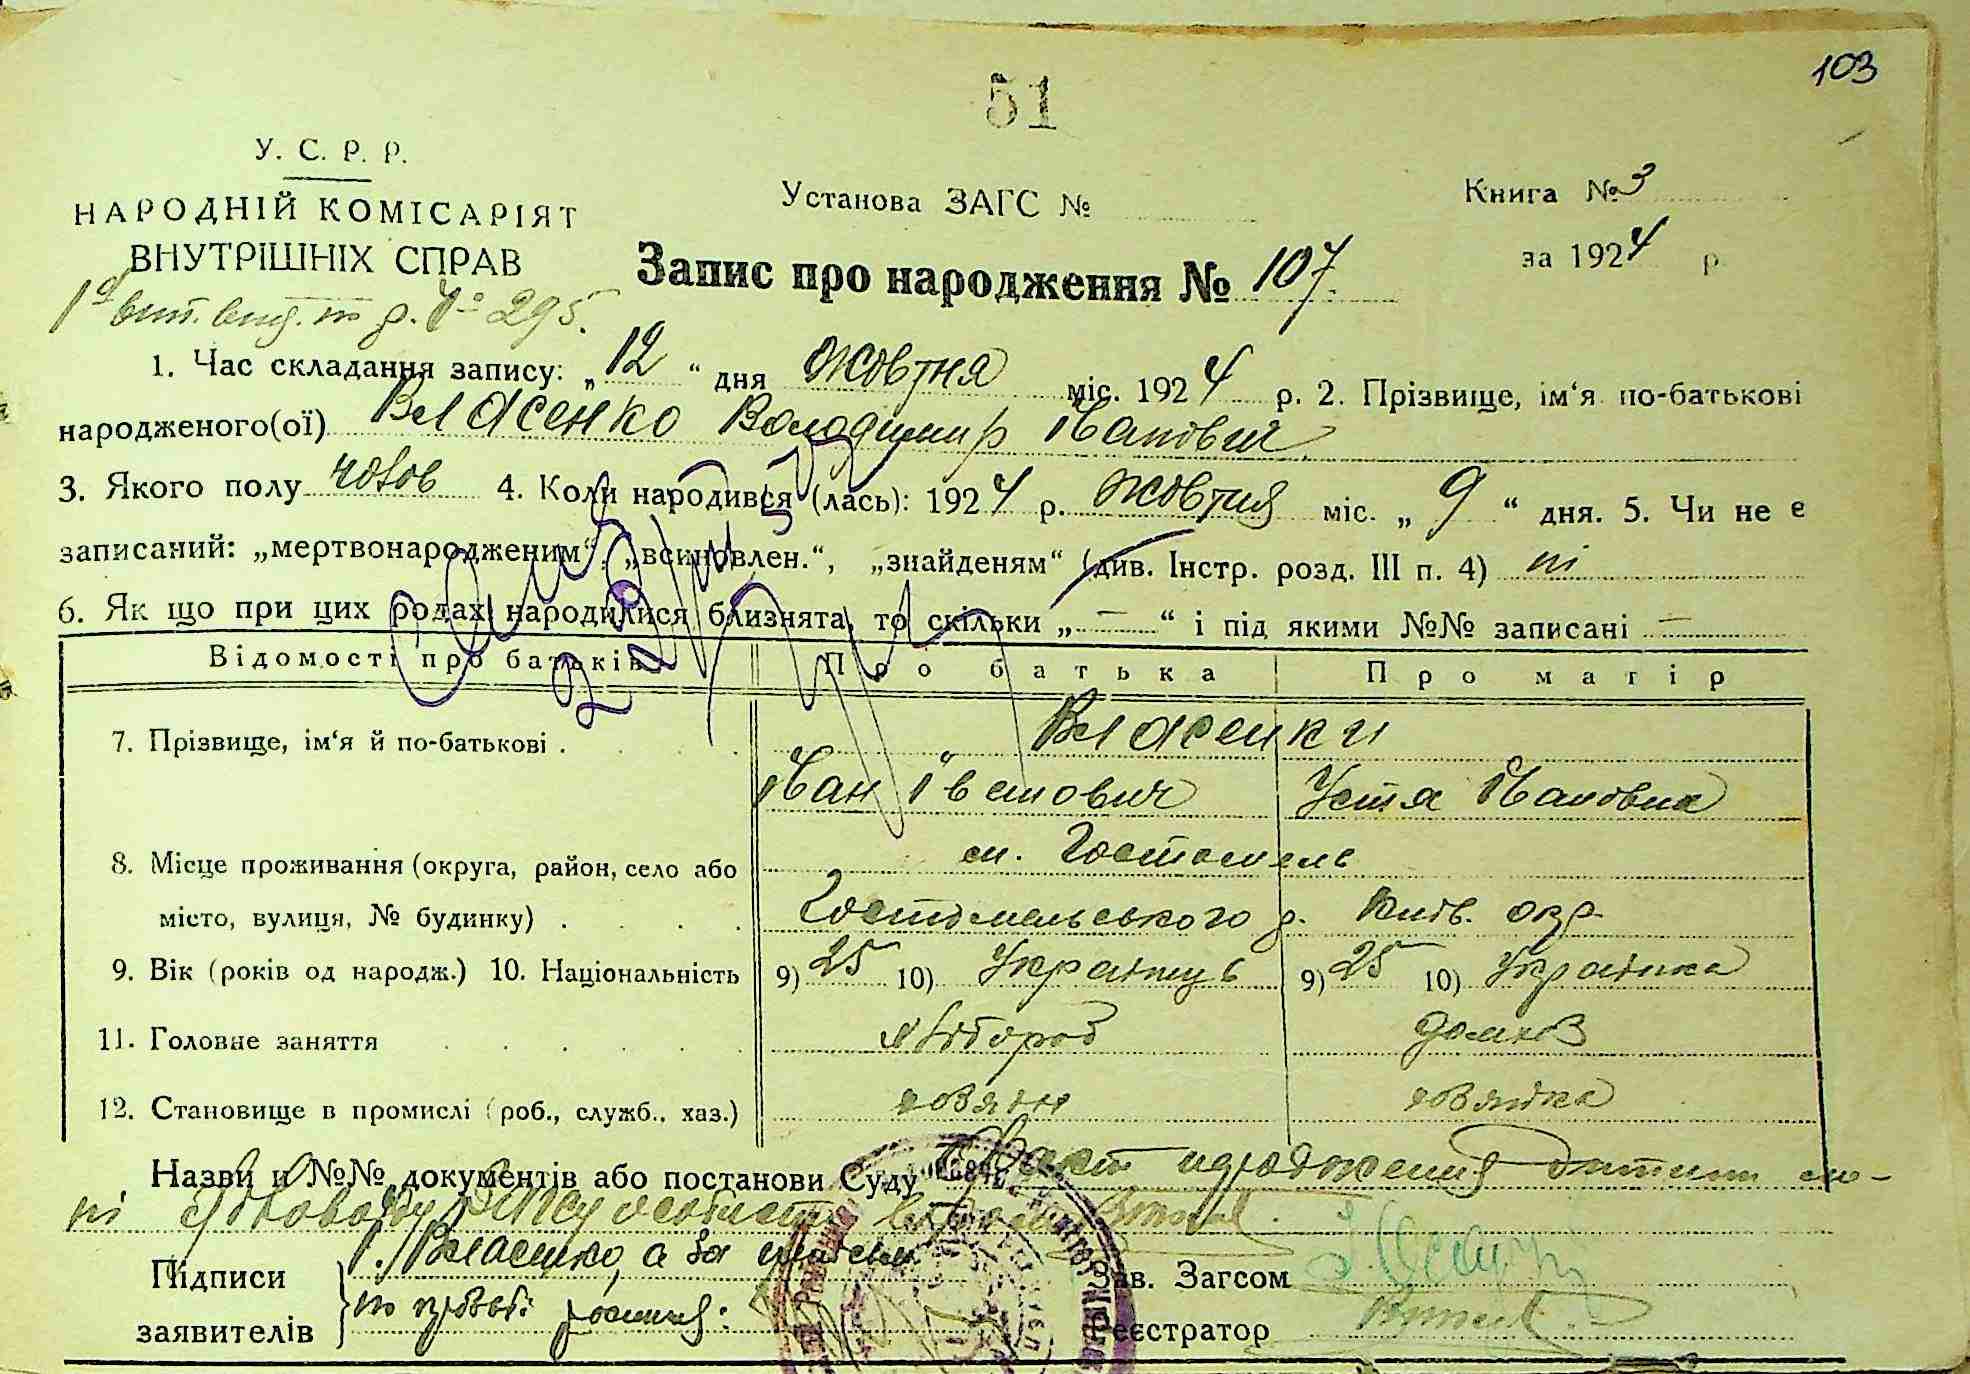 103
51
У. С. Р. Р.
НАРОДНІЙ КОМІСАРІЯТ
ВНУТРІШНІХ СПРАВ
Установа ЗАГС №
Книга № 3
за 1924 р.
Запис про народження № 107.
295.
1. Час складання запису: „12“ дня жовтня міс. 1924 р. 2. Прізвище, ім‘я по-батькові
народженого(ої) Власенко Володимир Іванович.
3. Якого полу чолов 4. Коли народився (лась): 1924 р. жовтня міс. „9“ дня. 5. Чи не є
записаний: „мертвонародженим“, „всиновлен.“, „знайденям“ (див. Інстр. розд. III п. 4) ні
6. Як що при цих родах народилися близнята, то скільки „—“ і під якими №№ записані —
Відомості про батьків Про батька Про матір
7. Прізвище, ім‘я й по-батькові . Власенки
Іван Устя Івановна
8. Місце проживання (округа, район, село або м. Гостомель
місто, вулиця, № будинку) . Гостомельського р. Київ. окр.
9. Вік (років од народж.) 10. Національність 9) 25 10) Українець 9) 25 10) Українка
11. Головне заняття хлібороб домхоз
12. Становище в промислі (роб., служб., хаз.)
Назви и №№ документів або постанови Суду Факт народження дитини
Підписи Власенко, а за
заявителів
Зав. Загсом
Реєстратор